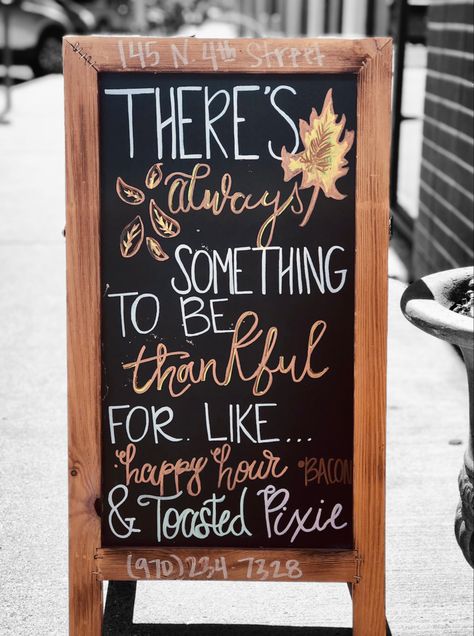 145 N. 4th Street
THERE'S
always
SOMETHING
TO BE
thankful
FOR. LIKE...
happy hour •BACON
& Toasted Pixie
(970)234 7328